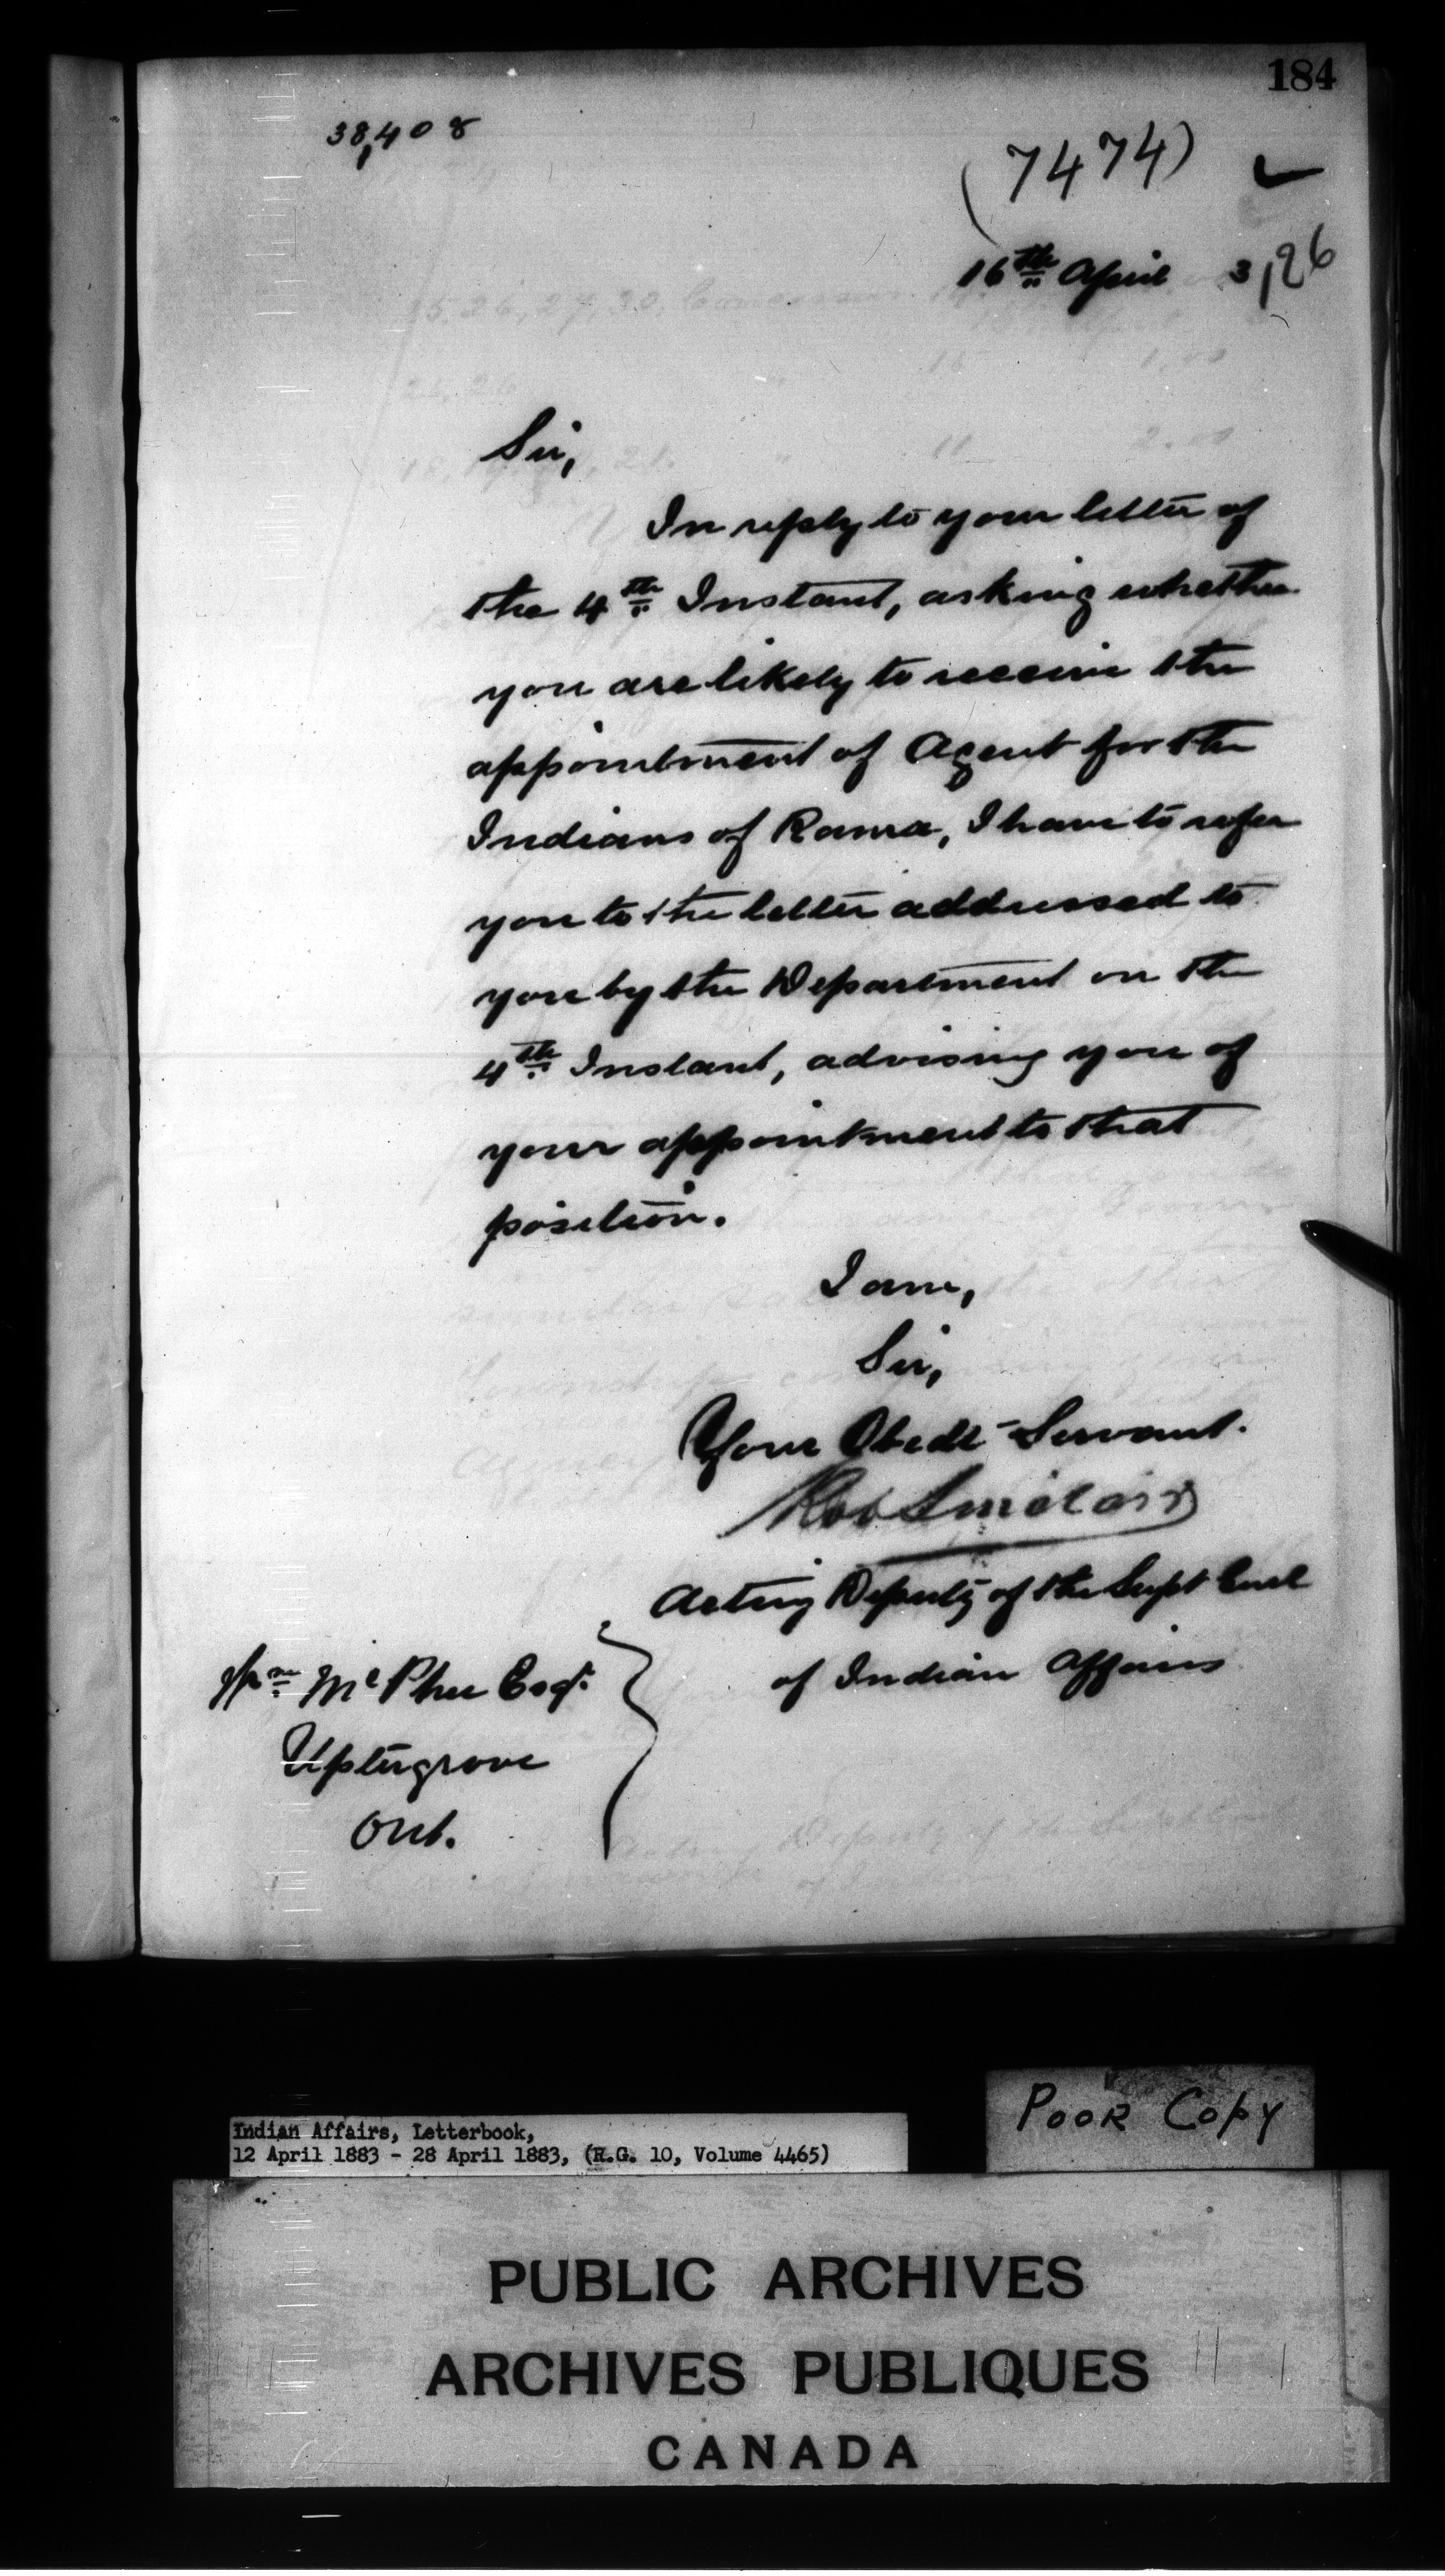 184
38,408
(7474)
16th April 3,26
Sir,
In reply to your letter of
the 4th Instant, asking whether
you are likely to receive the
appointment of Agent for the
Indians of Rama, I have to refer
you to the letter addressed to
you by the Department on the
4th Instant, advising you of
your appointment to that
position.
I am,
Sir,
Your Obedt Servant.
Rob Sinclair
Acting Deputy of the Supt Genl
of Indian Affairs
Wm McPhee Esqr.
Uptergrove
Ont.
Poor Copy
Indian Affairs, Letterbook,
12 April 1883 - 28 April 1883, (R.G. 10, Volume 4465)
PUBLIC ARCHIVES
ARCHIVES PUBLIQUES
CANADA